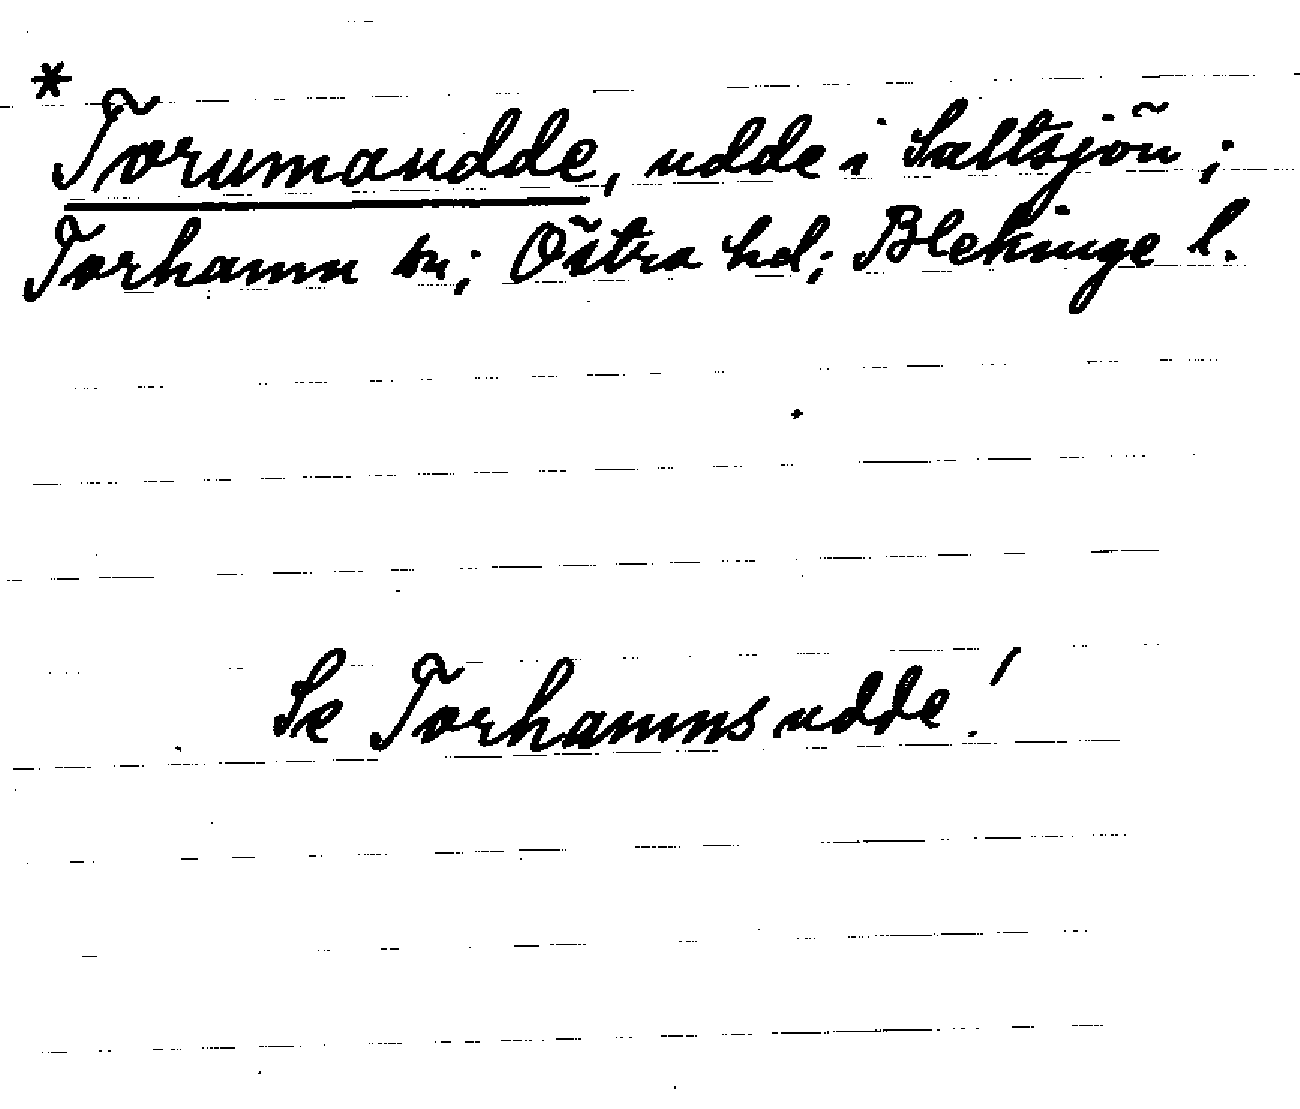 * Torumaudde, udde i Saltsjön;
Torhamn sn; Östra hd; Blekinge l.
Se Torhamnsudde!